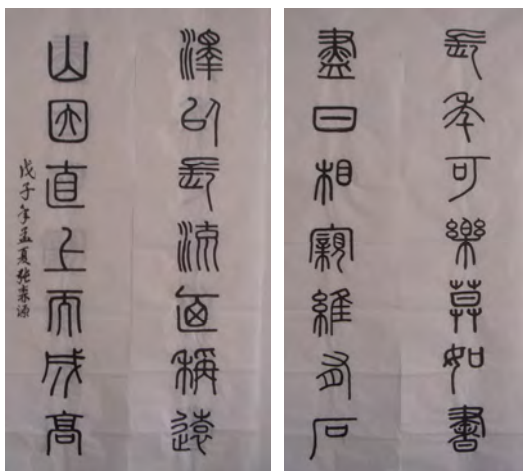 長年可樂莫如書
盡日相親維有石
澤以長流迺稱遠
山因直上而成高
戊子年孟夏張